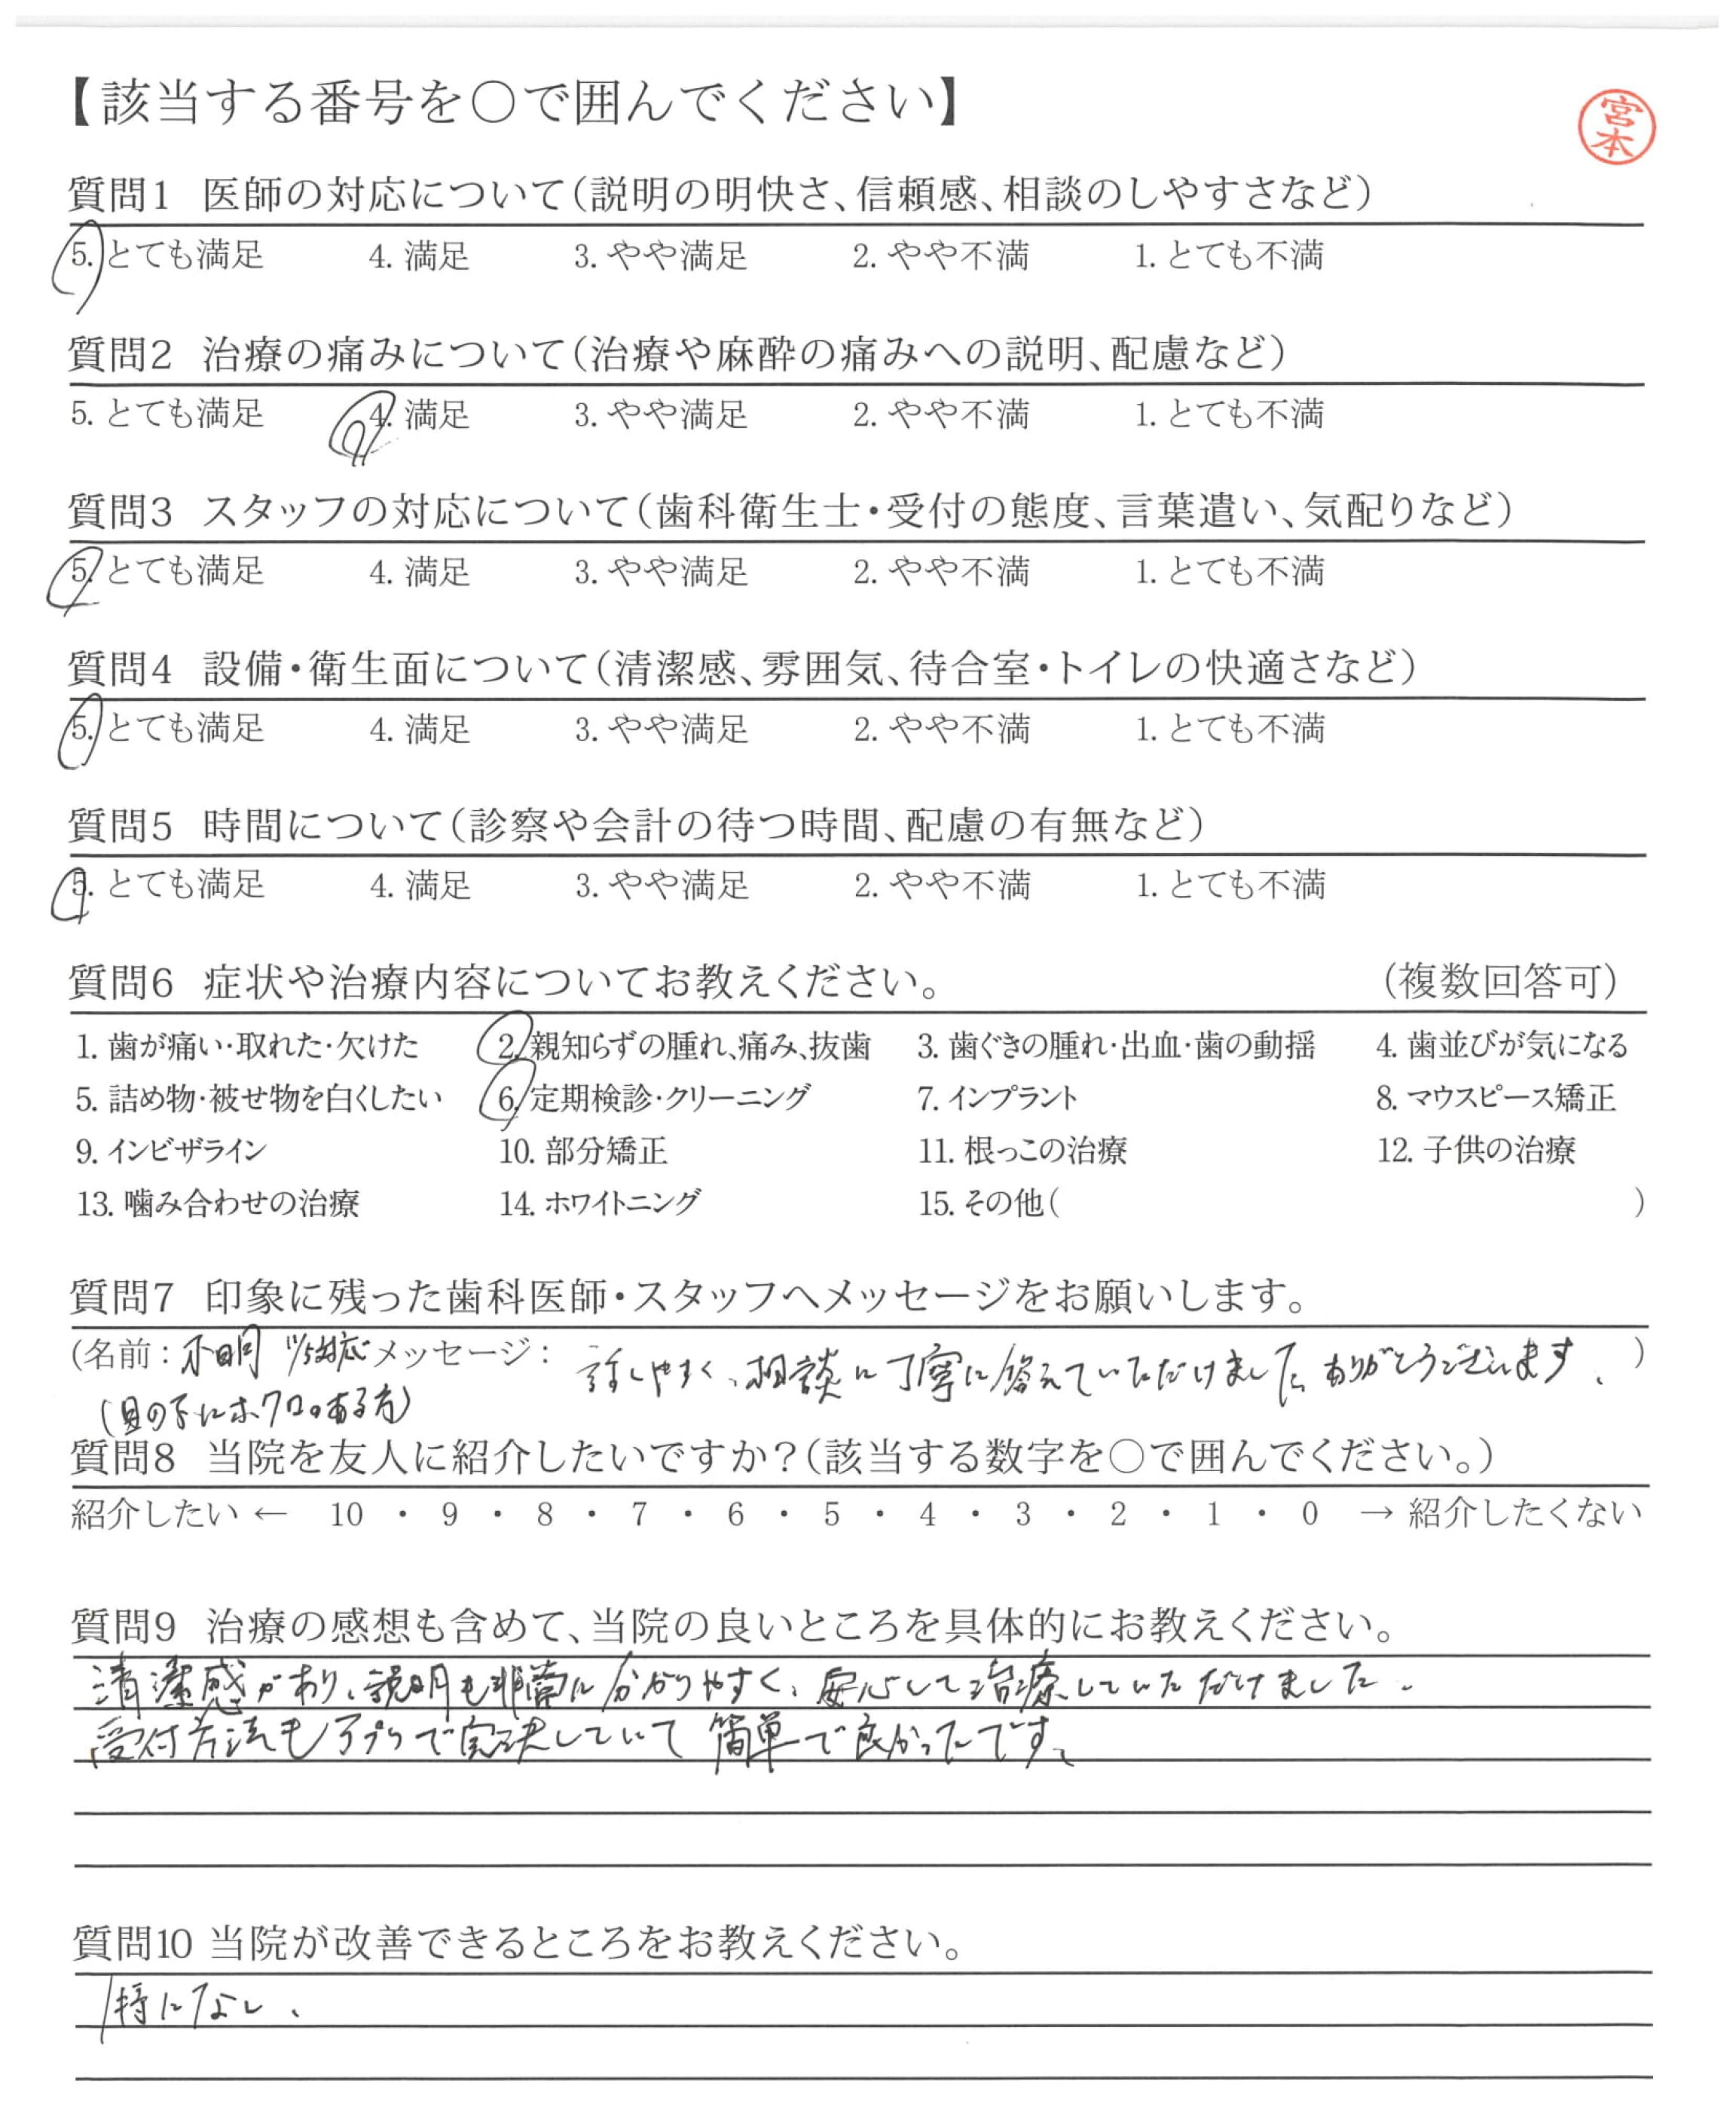 【該当する番号を○で囲んでください】
宮本
質問1 医師の対応について(説明の明快さ、信頼感、相談のしやすさなど)
5. とても満足 4. 満足 3. やや満足 2. やや不満 1. とても不満
質問2 治療の痛みについて(治療や麻酔の痛みへの説明、配慮など)
5. とても満足 4. 満足 3. やや満足 2. やや不満 1. とても不満
質問3 スタッフの対応について(歯科衛生士・受付の態度、言葉遣い、気配りなど)
5. とても満足 4. 満足 3. やや満足 2. やや不満 1. とても不満
質問4 設備・衛生面について(清潔感、雰囲気、待合室・トイレの快適さなど)
5. とても満足 4. 満足 3. やや満足 2. やや不満 1. とても不満
質問5 時間について(診察や会計の待つ時間、配慮の有無など)
5. とても満足 4. 満足 3. やや満足 2. やや不満 1. とても不満
質問6 症状や治療内容についてお教えください。 (複数回答可)
1. 歯が痛い・取れた・欠けた 2. 親知らずの腫れ、痛み、抜歯 3. 歯ぐきの腫れ・出血・歯の動揺 4. 歯並びが気になる
5. 詰め物・被せ物を白くしたい 6. 定期検診・クリーニング 7. インプラント 8. マウスピース矯正
9. インビザライン 10. 部分矯正 11. 根っこの治療 12. 子供の治療
13. 噛み合わせの治療 14. ホワイトニング 15. その他( )
質問7 印象に残った歯科医師・スタッフへメッセージをお願いします。
(名前: 不明 11/5対応 メッセージ: 話しやすく、相談に丁寧に答えていただけました。ありがとうございます。 )
(目の下にホクロのある方)
質問8 当院を友人に紹介したいですか?(該当する数字を○で囲んでください。)
紹介したい ← 10 ・ 9 ・ 8 ・ 7 ・ 6 ・ 5 ・ 4 ・ 3 ・ 2 ・ 1 ・ 0 → 紹介したくない
質問9 治療の感想も含めて、当院の良いところを具体的にお教えください。
清潔感があり、説明も非常に分かりやすく、安心して治療していただけました。
受付方法もアプリで完決していて簡単で良かったです。
質問10 当院が改善できるところをお教えください。
特になし、